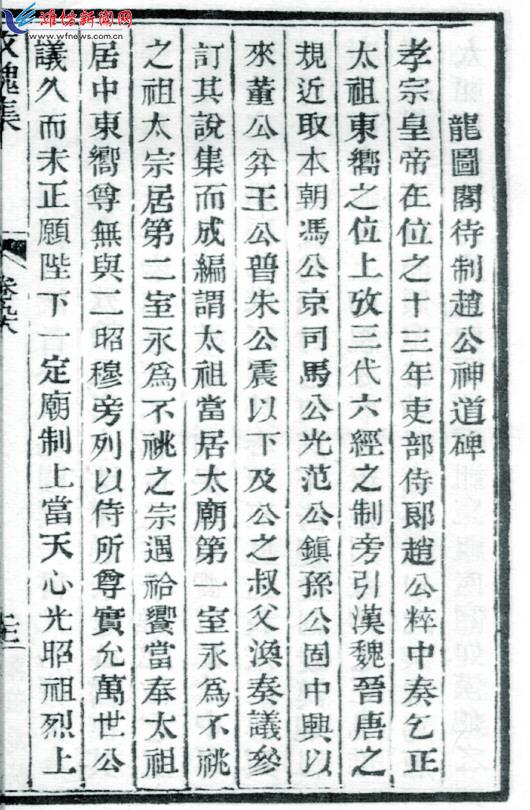 潍坊新闻网
www.wfnews.com.cn
龍圖閣待制趙公神道碑
孝宗皇帝在位之十三年吏部侍郎趙公粹中奏乞正
太祖東嚮之位上攷三代六經之制旁引漢魏晉唐之
規近取本朝馮公京司馬公光范公鎮孫公固中興以
來董公弅王公普朱公震以下及公之叔父渙奏議參
訂其說集而成編謂太祖當居太廟第一室永爲不祧
之祖太宗居第二室永爲不祧之宗遇祫饗當奉太祖
居中東嚮尊無與二昭穆旁列以侍所尊實允萬世公
議久而未正願陛下一定廟制上當天心光昭祖烈上
攻媿集
卷九十八